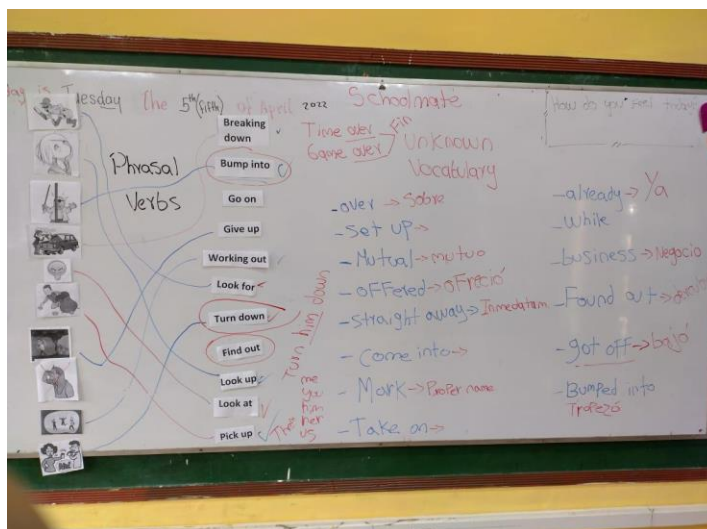 day is Tuesday The 5th (Fifth) of April 2022
Schoolmate
How do you feel today?
Phrasal
Verbs
Breaking
down
Bump into
Go on
Give up
Working out
Look for
Turn down
Find out
Look up
Look at
Pick up
Turn him down
Them
me
you
it
her
us
Time over
Game over
Fin
Unknown
Vocabulary
-over → sobre
-Set up →
-Mutual → mutuo
-offered → ofreció
-straight away → Inmediatam
-Come into →
-Mark → Proper name
-Take on →
-already → Ya
-While
-business → Negocio
-Found out →
-got off → bajó
-Bumped into
Tropezó